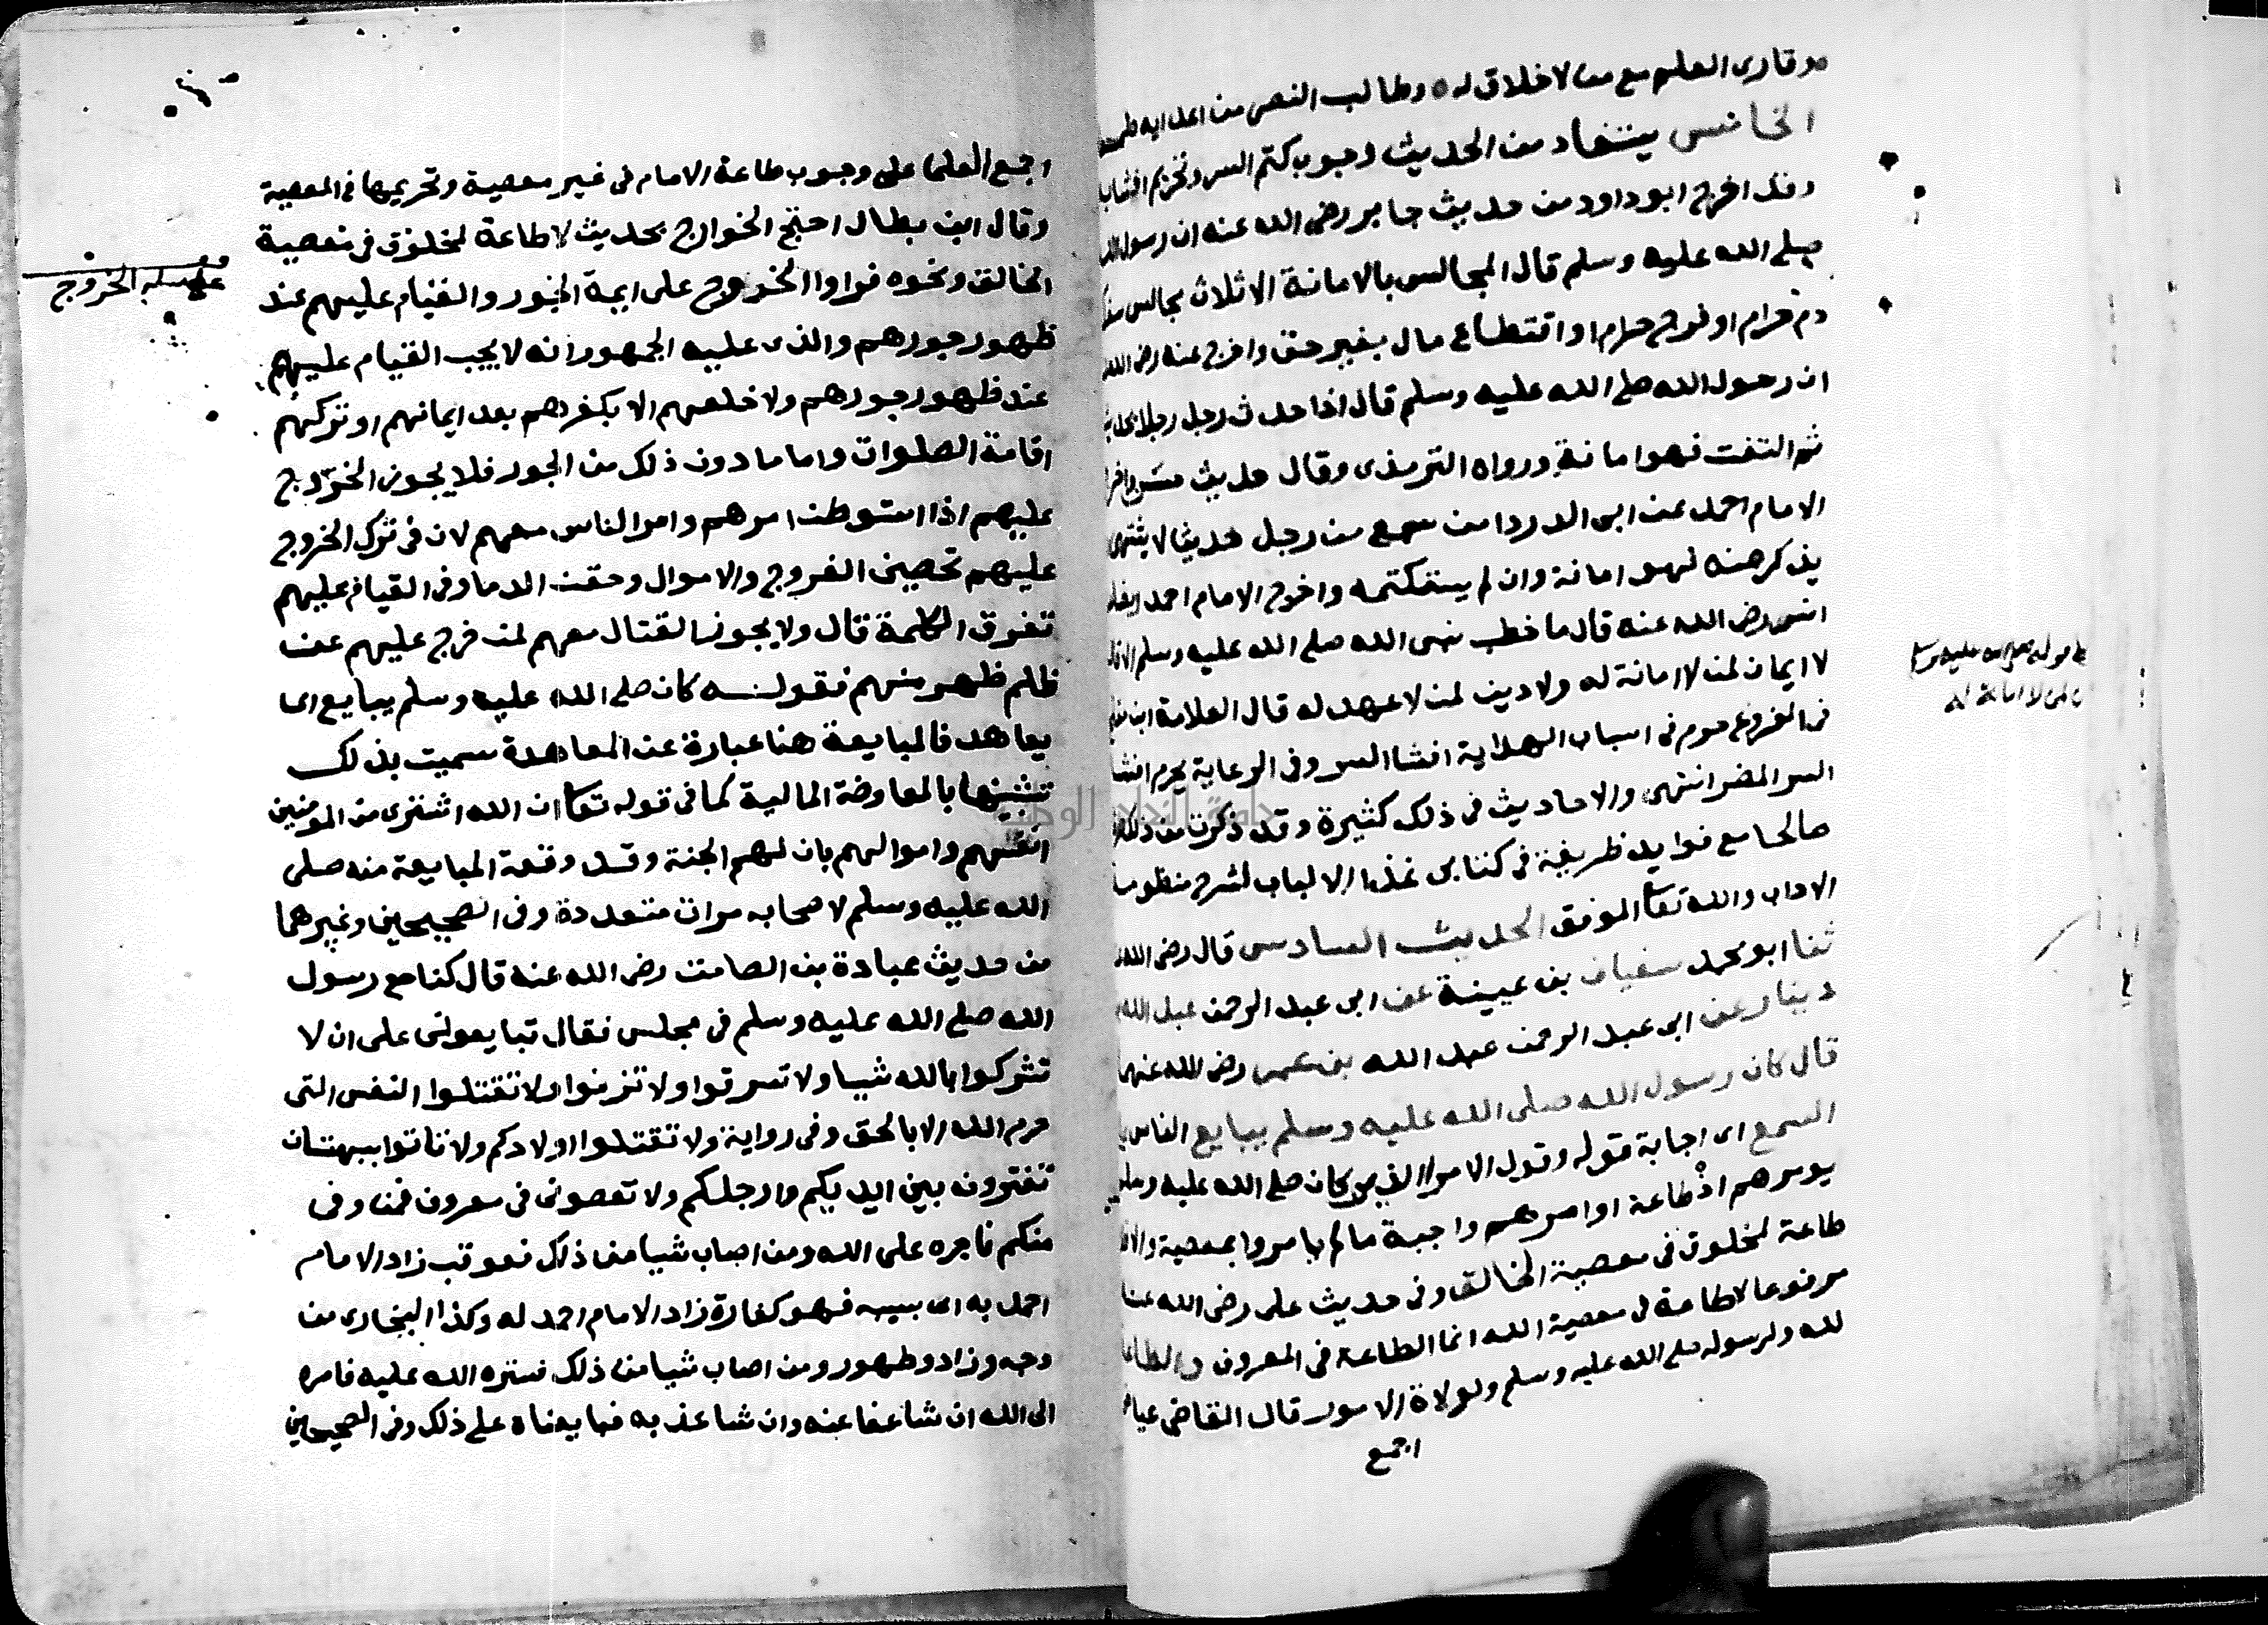 وقارى العلم مع من لا خلاق له ه وطالب النصر من اعدايه
الخامس يستفاد من الحديث وجوب كتم السر وتحريم افشايه
وقد اخرج ابو داود من حديث جابر رضى الله عنه ان رسول الله
صلى الله عليه وسلم قال المجالس بالامانة الا ثلاث مجالس سفك
دم حرام او فرج حرام او اقتطاع مال بغير حق واخرج عنه رضى الله
ان رسول الله صلى الله عليه وسلم قال اذا حدث رجل رجلا بحديث
ثم التفت فهو امانة ورواه الترمذى وقال حديث حسن واخرج
الامام احمد عن ابى الدردا من سمع من رجل حديثا لا يشتهى
يذكر عنه فهو امانة وان لم يستكتمه واخرج الامام احمد ايضا
انس رضى الله عنه قال ما خطب نبى الله صلى الله عليه وسلم الا قال
لا ايمان لمن لا امانة له ولا دين لمن لا عهد له قال العلامة ابن مفلح
فى الفروع حرم فى اسباب الهداية افشا السر وفى الرعاية يحرم افشا
السر المضر انتهى والاحاديث فى ذلك كثيرة وقد ذكرت من ذلك
صالحا مع فوايد ظريفة فى كتابى غذاء الالباب لشرح منظومة
الاداب والله تعا الموفق الحديث السادس قال رضى الله
ثنا ابو محمد سفيان بن عيينة عن ابى عبد الرحمن عبد الله
دينار عن ابى عبد الرحمن عبد الله بن عمر رضى الله عنهما
قال كان رسول الله صلى الله عليه وسلم يبايع الناس
السمع اى اجابة قوله وقول الامرا الذين كان صلى الله عليه وسلم
يومرهم اذ طاعة اوامرهم واجبة ما لم يامروا بمعصية والا فلا
طاعة لمخلوق فى معصية الخالق وفى حديث على رضى الله عنه
مرفوعا لا طاعة فى معصية الله انما الطاعة فى المعروف والطاعة
لله ولرسوله صلى الله عليه وسلم ولولاة الامور قال القاضى عياض
اجمع
صلى الله عليه وسلم
لا امانة له
اجمع العلما على وجوب طاعة الامام فى غير معصية وتحريمها فى المعصية
وقال ابن بطال احتج الخوارج بحديث لا طاعة لمخلوق فى معصية
الخالق ونحوه فراوا الخروج على ايمة الجور والقيام عليهم عند
ظهور جورهم والذى عليه الجمهور انه لا يجب القيام عليهم
عند ظهور جورهم ولا خلعهم الا بكفرهم بعد ايمانهم او تركهم
اقامة الصلوات واما ما دون ذلك من الجور فلا يجوز الخروج
عليهم اذا استوطن امرهم وامر الناس معهم لان فى ترك الخروج
عليهم تحصين الفروج والاموال وحقن الدما وفى القيام عليهم
تفرق الكلمة قال ولا يجوز القتال معهم لمن خرج عليهم عن
ظلم ظهر منهم فقوله كان صلى الله عليه وسلم يبايع اى
يعاهد فالمبايعة هنا عبارة عن المعاهدة سميت بذلك
تشبيها بالمعاوضة المالية كما فى قوله تعا ان الله اشترى من المومنين
انفسهم واموالهم بان لهم الجنة وقد وقعة المبايعة منه صلى
الله عليه وسلم لاصحابه مرات متعددة وفى الصحيحين وغيرهما
من حديث عبادة بن الصامت رضى الله عنه قال كنا مع رسول
الله صلى الله عليه وسلم فى مجلس فقال تبايعونى على ان لا
تشركوا بالله شيا ولا تسرقوا ولا تزنوا ولا تقتلوا النفس التى
حرم الله الا بالحق وفى رواية ولا تقتلوا اولادكم ولا تاتوا ببهتان
تفترونه بين ايديكم وارجلكم ولا تعصونى فى معروف فمن وفى
منكم فاجره على الله ومن اصاب شيا من ذلك فعوقب زاد الامام
احمد به اى بسببه فهو كفارة زاد الامام احمد له وكذا البخارى من
وجه وزاد وطهور ومن اصاب شيا من ذلك فستره الله عليه فامره
الى الله ان شا عفا عنه وان شا عذبه فبايعناه على ذلك وفى الصحيحين
الخروج